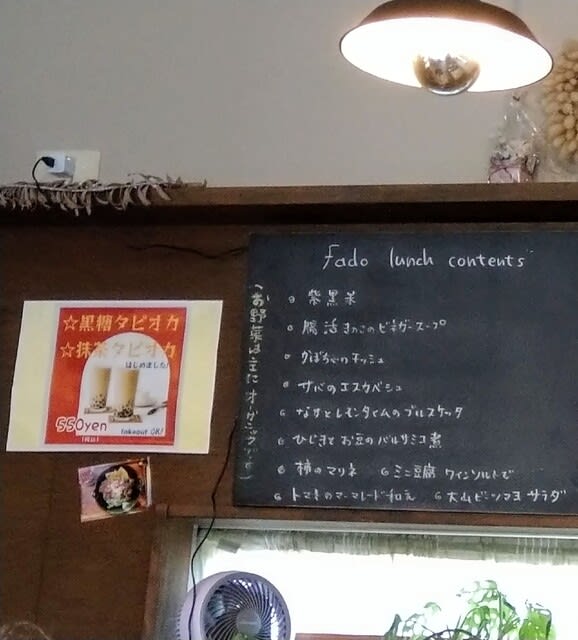 ☆黒糖タピオカ
☆抹茶タピオカ
はじめました!
550yen
(税込)
takeout OK!
fado lunch contents
(お野菜は主にオーガニックです)
紫黒米
腸活きのこのビネガースープ
かぼちゃのキッシュ
サバのエスカベシュ
なすとレモンタイムのブルスケッタ
ひじきとお豆のバルサミコ煮
柿のマリネ ミニ豆腐 ワインソルトで
トマトのマーマレード和え 大山ビーツマヨサラダ